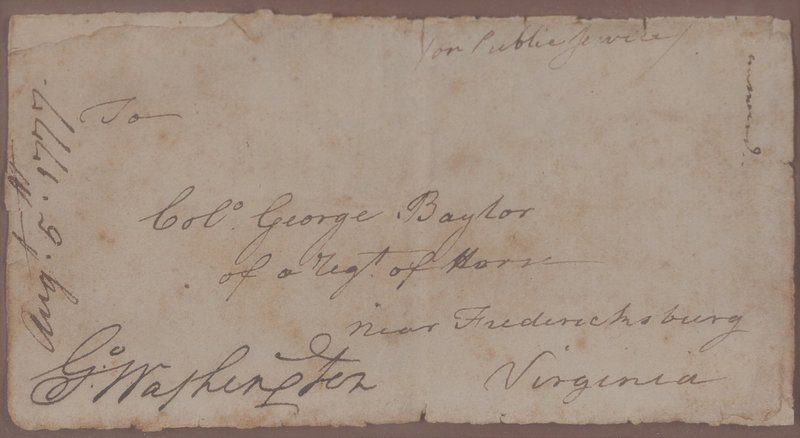 (on Public Service)
To
Colo. George Baylor
of a regt. of Horse
near Fredericksburg
Virginia
Go: Washington
Aug. 5. 1777.
answered.